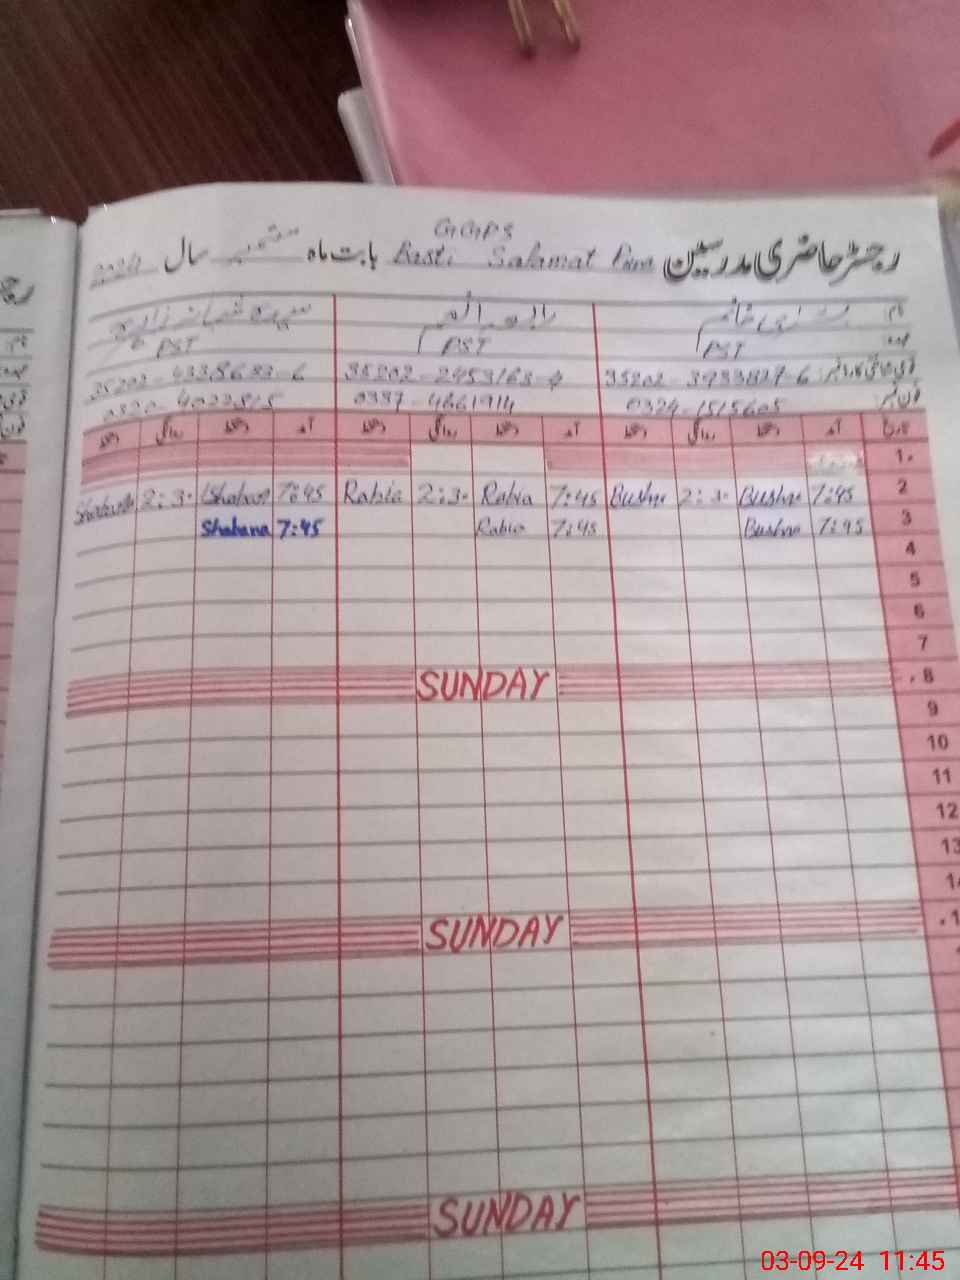 GGPS
رجسٹر حاضری مدرسین Basti Salamat Pura بابت ماہ ستمبر سال 2024
نام رابعہ سیدہ شبانہ
عہدہ PST PST PST
35202-3933827-6 35202-2453168- 35202-4338683-6
فون نمبر 0324-1515605 0337-4661914 0320-4022815
تاریخ آمد دستخط روانگی دستخط آمد دستخط روانگی دستخط آمد دستخط روانگی دستخط
1
2 7:45 Bushra 2:30 Bushra 7:45 Rabia 2:30 Rabia 7:45 Shabana 2:30 Shabana
3 7:45 Bushra 7:45 Rabia 7:45 Shabana
4
5
6
7
8 SUNDAY
9
10
11
12
13
14
SUNDAY
SUNDAY
03-09-24 11:45